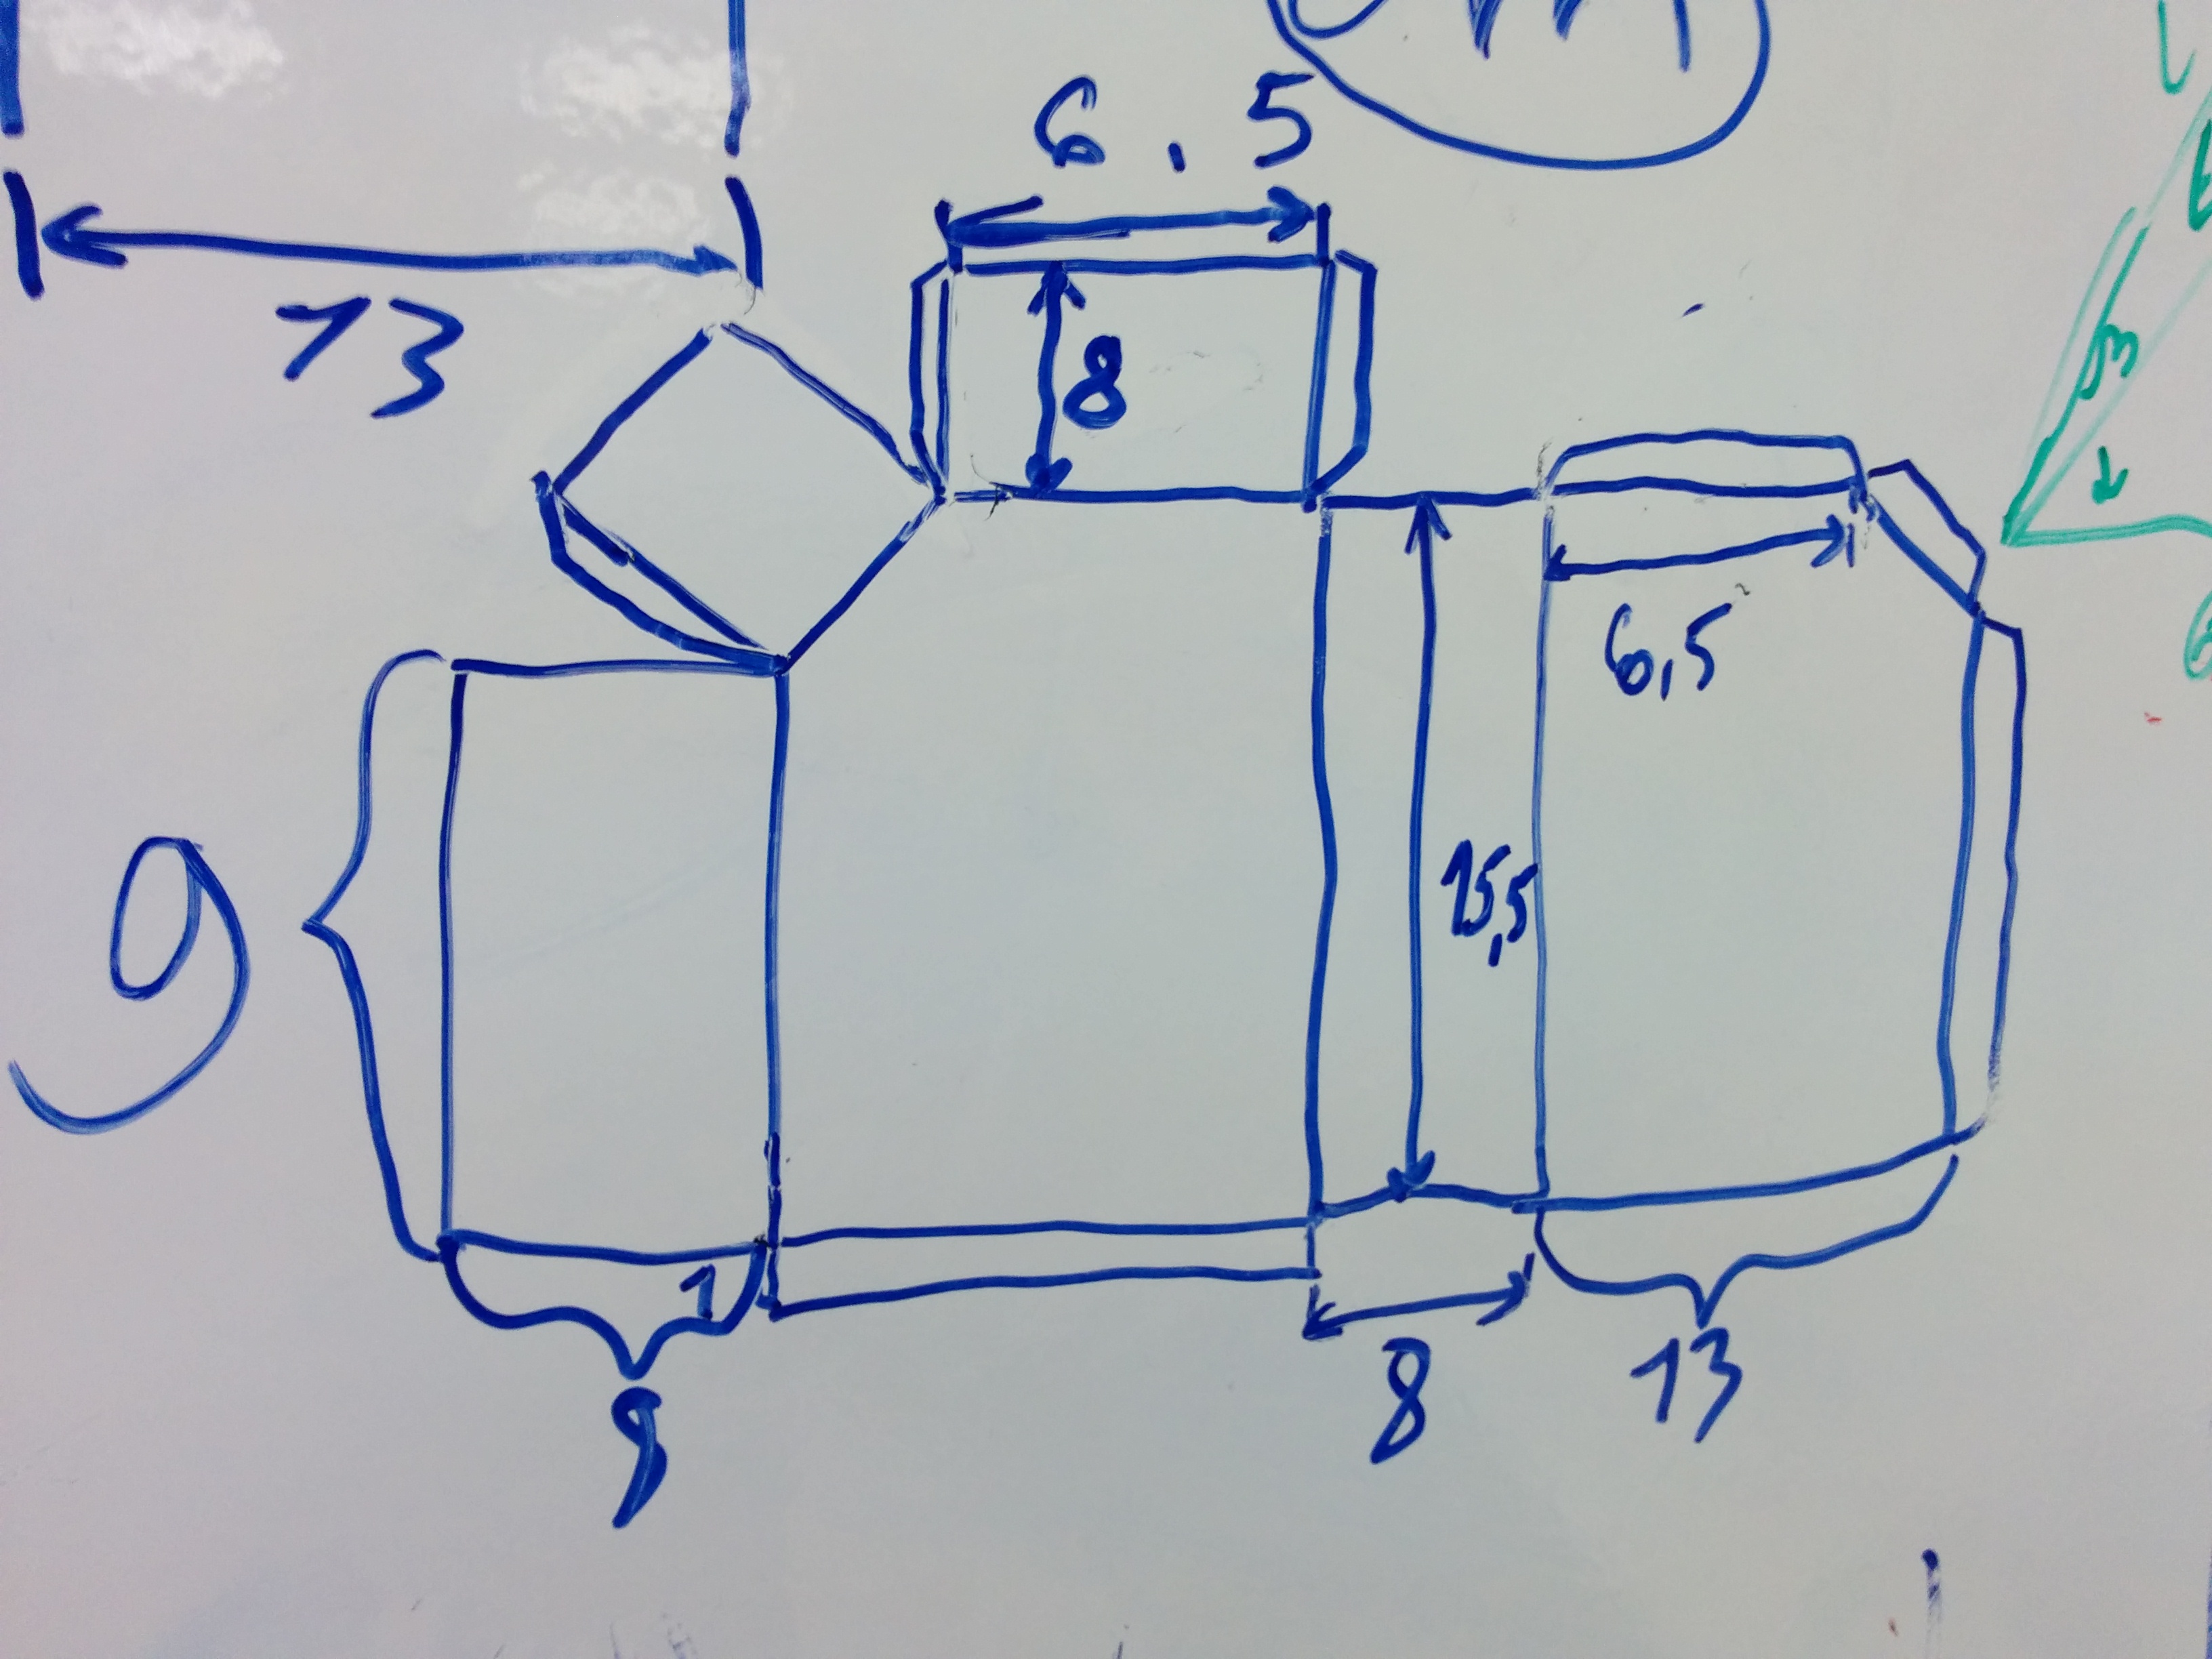 6.5
13
8
6,5
15,5
9
1
9
8
13